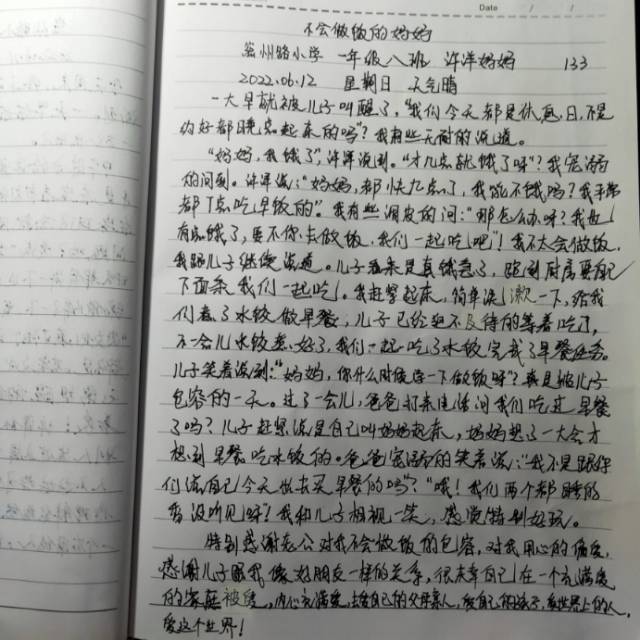 Date
不会做饭的妈妈
密州路小学 一年级八班 许洋妈妈 133
2022.06.12 星期日 天气晴
一大早就被儿子叫醒了,“我们今天都是休息日,不是
约好都晚点起床的吗”?我有些无耐的说道。
“妈妈,我饿了”,洋洋说到。“才几点就饿了呀”?我宠溺
的问到。洋洋说:“妈妈,都快九点了,我能不饿吗?我平常
都7点吃早饭的”。我有些调皮的问:“那怎么办呀?我也
有点饿了,要不你去做饭,我们一起吃吧”!我不太会做饭,
我跟儿子继续说道。儿子看来是真饿急了,跑到厨房要自己
下面条我们一起吃。我赶紧起床,简单洗漱一下,给我
们煮了水饺做早餐,儿子已经迫不及待的等着吃了,
不一会儿水饺煮好了,我们一起吃了水饺完成了早餐任务。
儿子笑着说到:“妈妈,你什么时候学一下做饭呀”?真是被儿子
包容的一天。过了一会儿,爸爸打来电话问我们吃过早餐
了吗?儿子赶紧说是自己叫妈妈起床,妈妈想了一大会才
想到早餐吃水饺的。爸爸宠溺的笑着说:“我不是跟你
们说自己今天出去买早餐的吗”?“哦!我们两个都睡的
香没听见呀!我和儿子相视一笑,感觉特别好玩。
特别感谢老公对我不会做饭的包容,对我用心的偏爱,
感谢儿子跟我像好朋友一样的关系,很庆幸自己在一个充满爱
的家庭被爱,内心充满爱,去爱自己的父母亲人,爱自己的孩子,爱世界上的人,
爱这个世界!